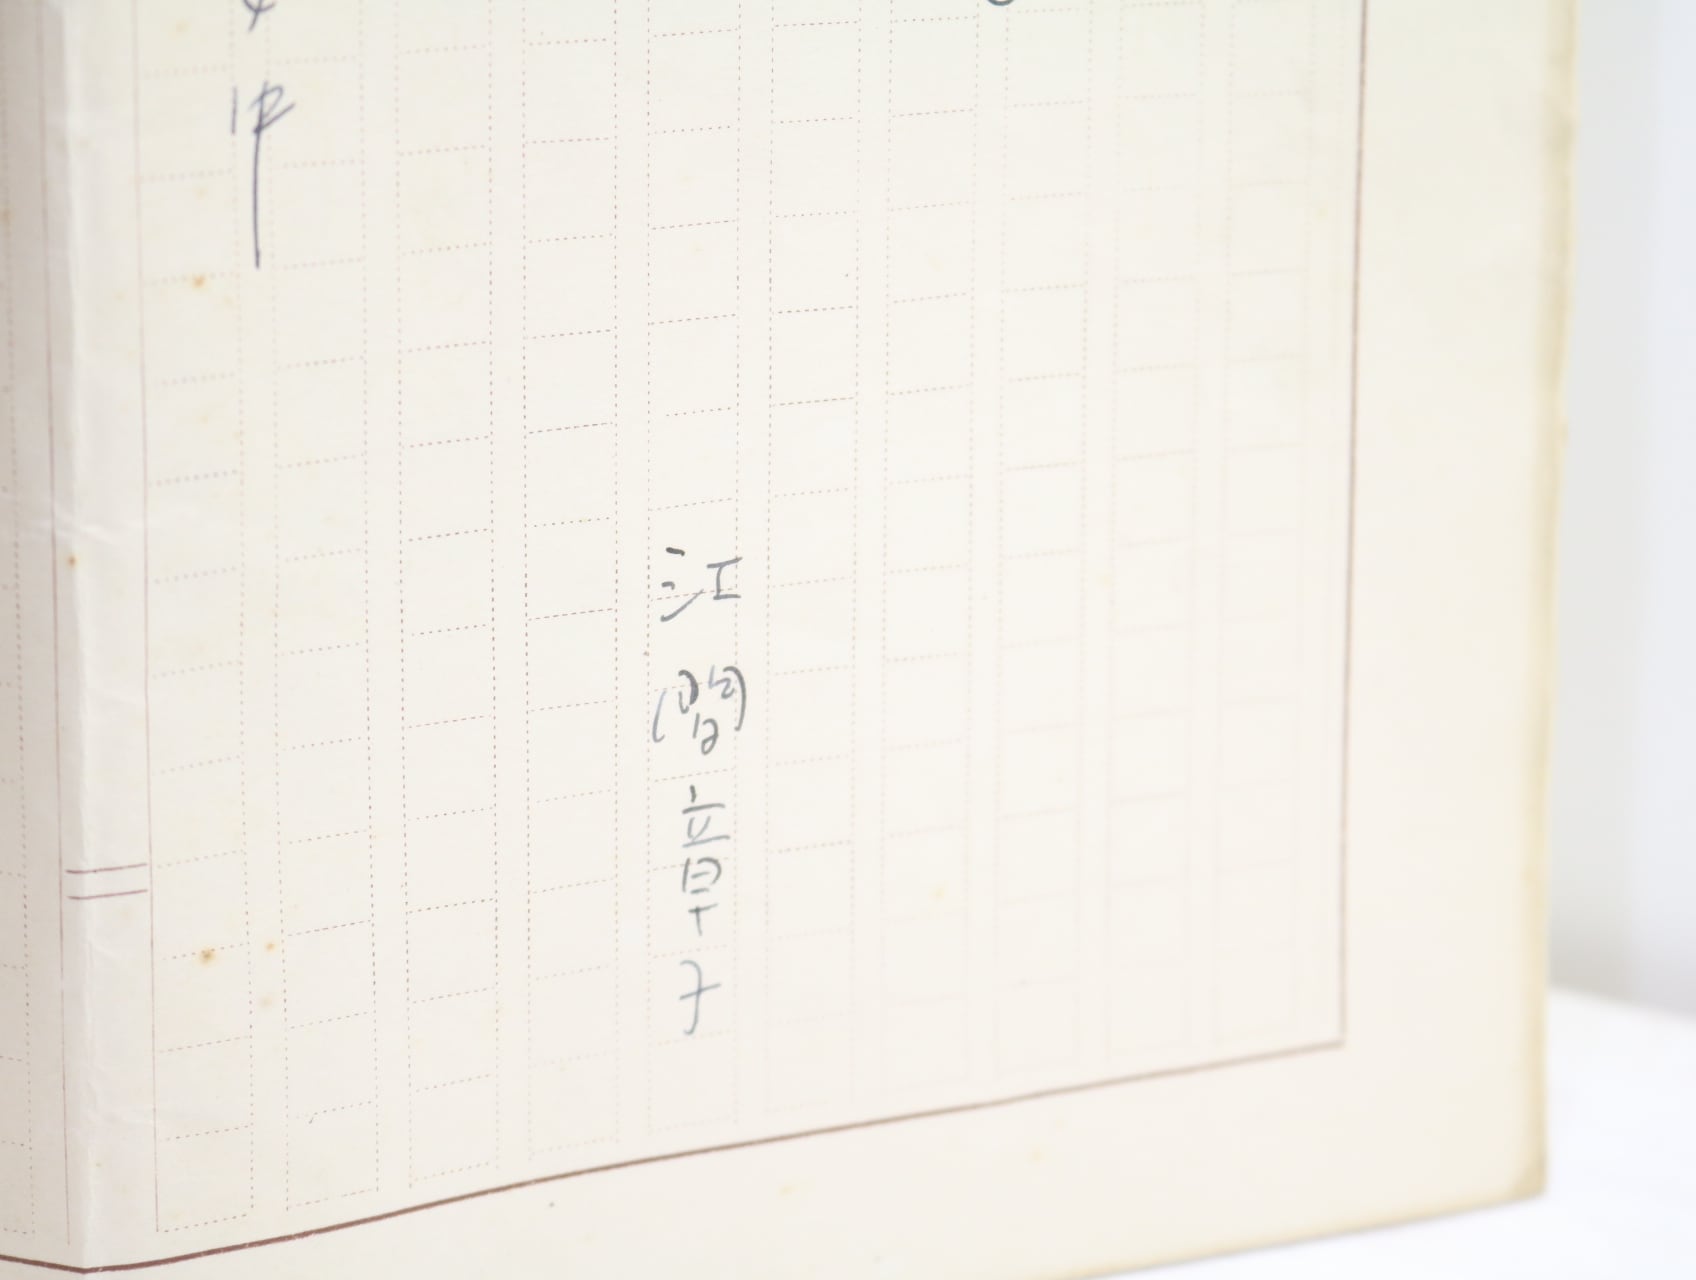 江間章子